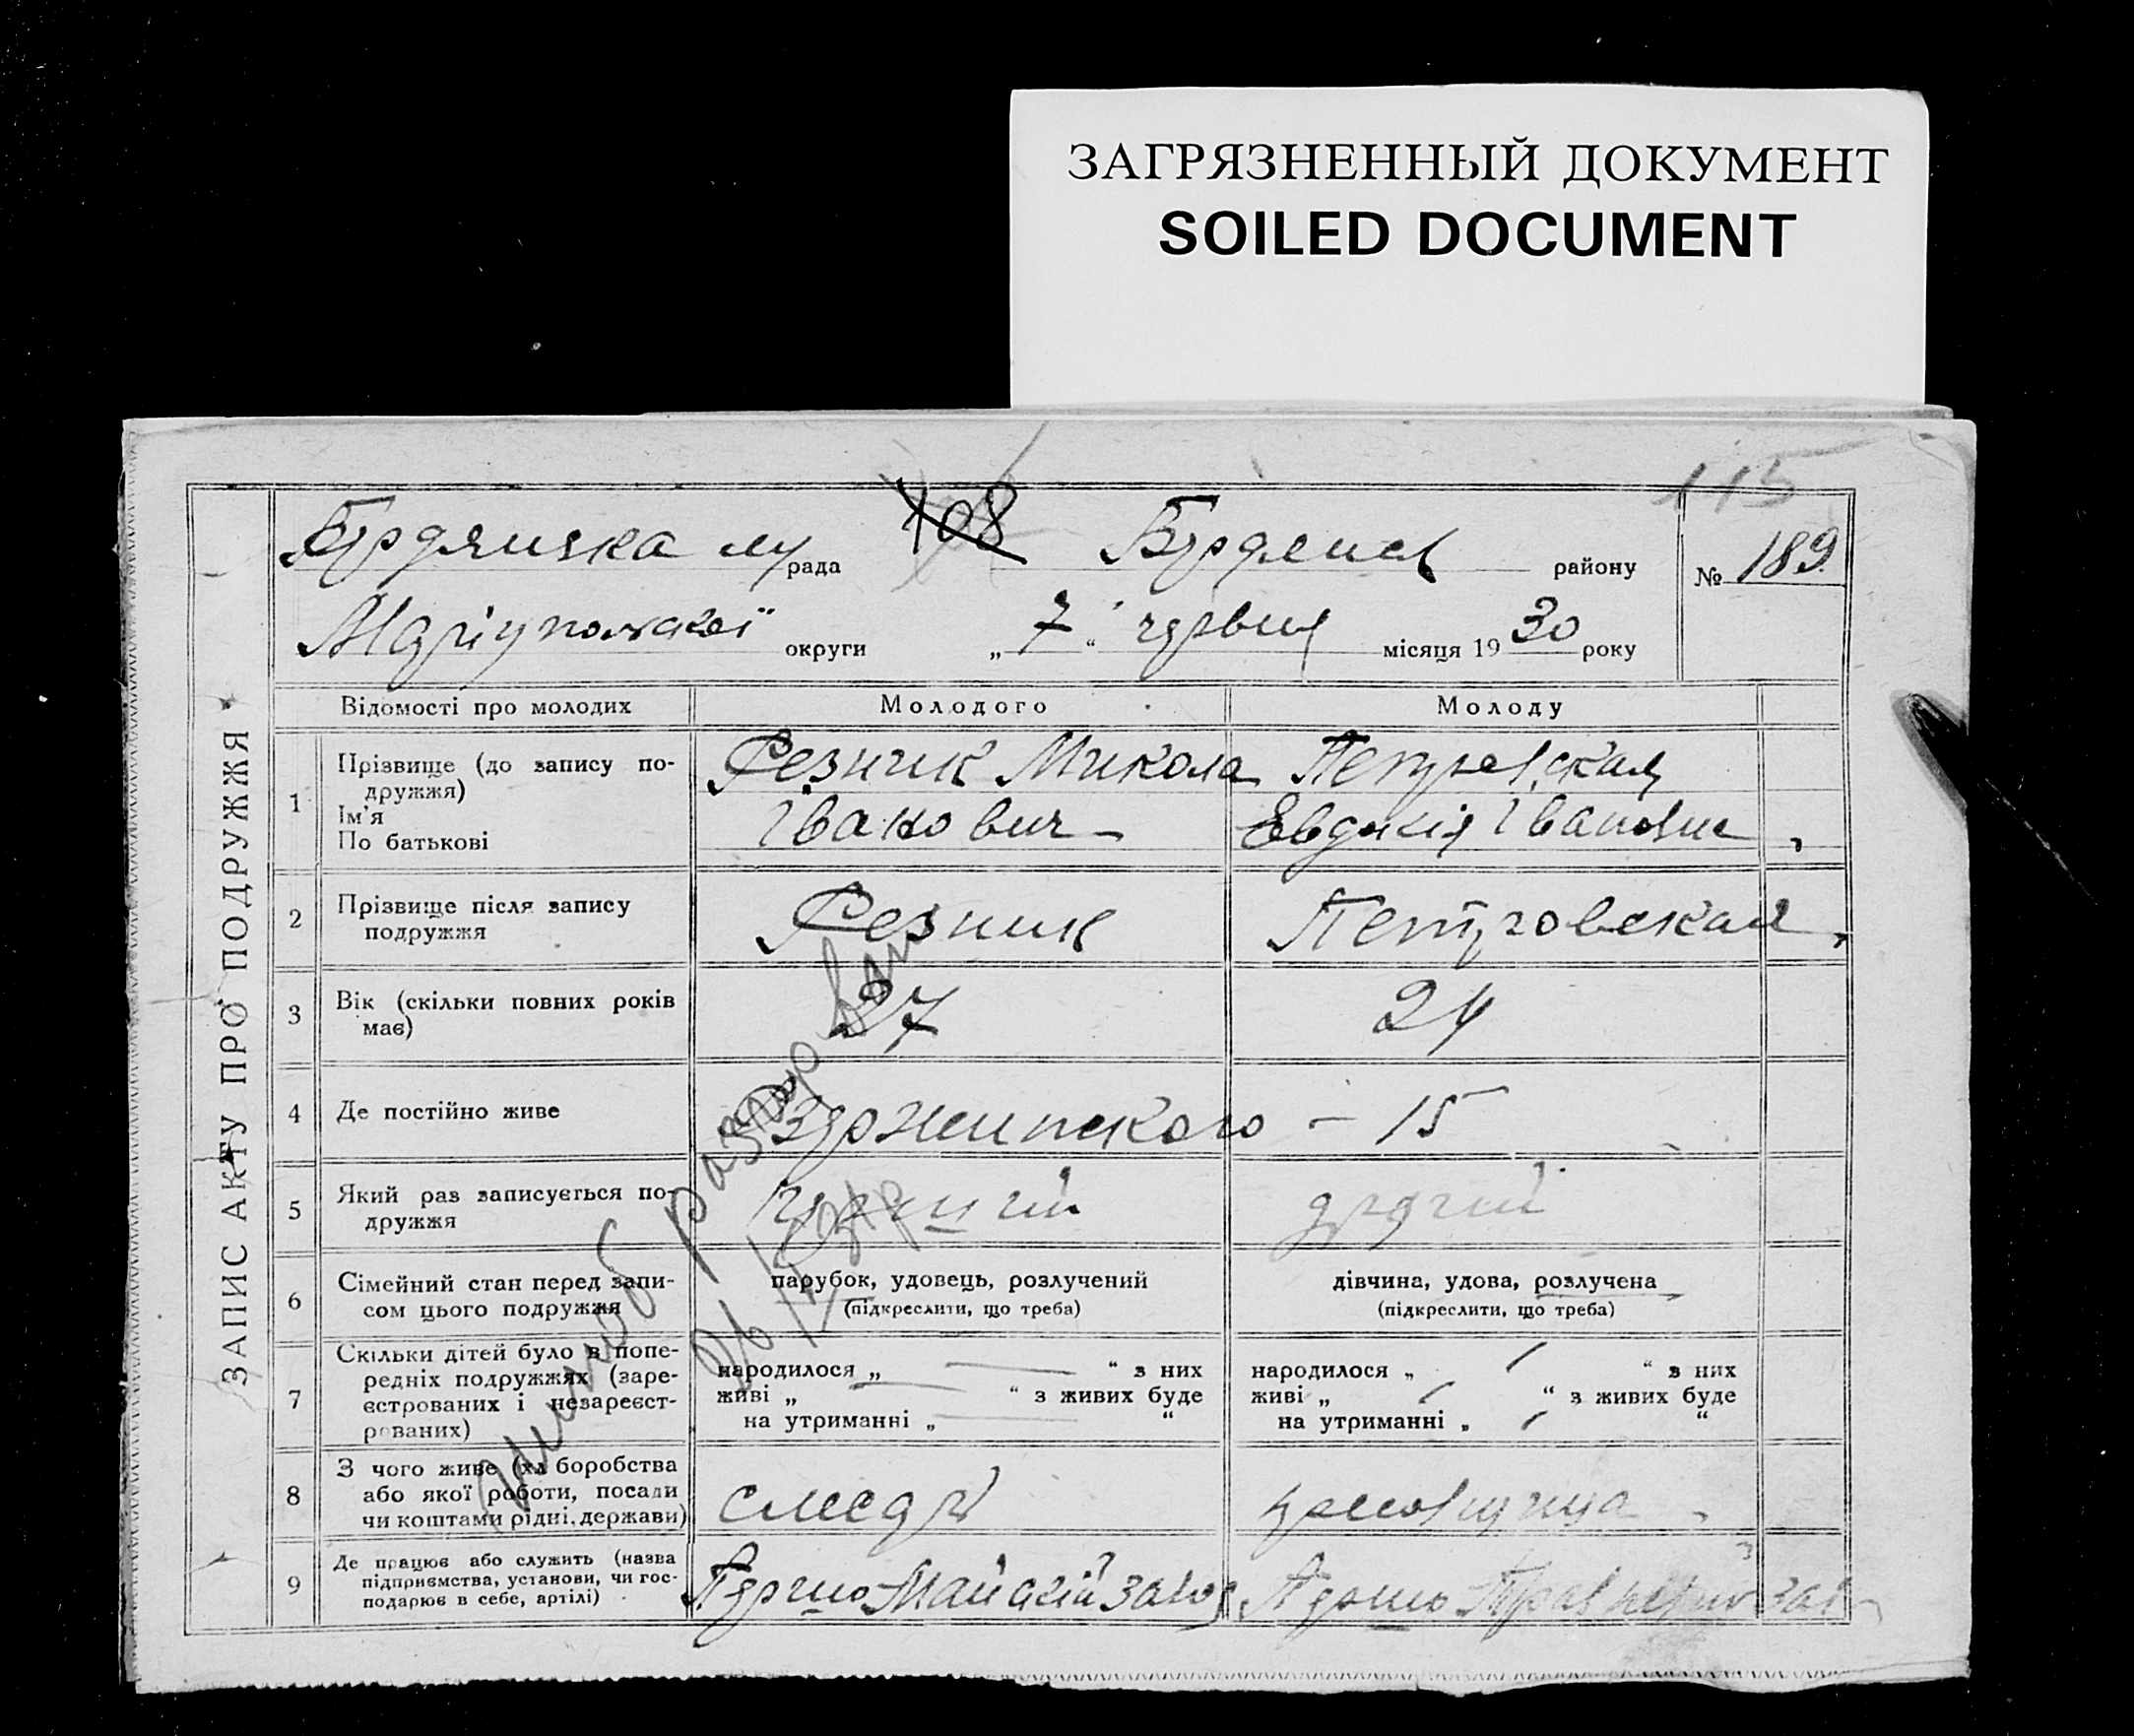 ЗАГРЯЗНЕННЫЙ ДОКУМЕНТ
SOILED DOCUMENT
115
108
рада
району
№ 189
Маріупольскої округи „ 7 “ червня місяця 19 30 року
ЗАПИС АКТУ ПРО ПОДРУЖЖЯ
Відомості про молодих
Молодого
Молоду
1
Прізвище (до запису по-
дружжя)
Ім'я
По батькові
Резник Микола
Іванович
Петровская
Евдокія
2
Прізвище після запису
подружжя
Резник
Петровская
3
Вік (скільки повних років
має)
27
24
4
Де постійно живе
Дзержинского – 15
5
Який раз записується по-
дружжя
другий
6
Сімейний стан перед запи-
сом цього подружжя
парубок, удовець, розлучений
(підкреслити, що треба)
дівчина, удова, розлучена
(підкреслити, що треба)
7
Скільки дітей було в попе-
редніх подружжях (заре-
єстрованих і незареєст-
рованих)
народилося „ — “ з них
живі „ — “ з живих буде
на утриманні „ — “
народилося „ / “ з них
живі „ / “ з живих буде
на утриманні „ / “
8
З чого живе (хл боробства
або якої роботи, посади
чи коштами рідні, держави)
9
Де працює або служить (назва
підприємства, установи, чи гос-
подарює в себе, артілі)
Першо Майский завод
Першо